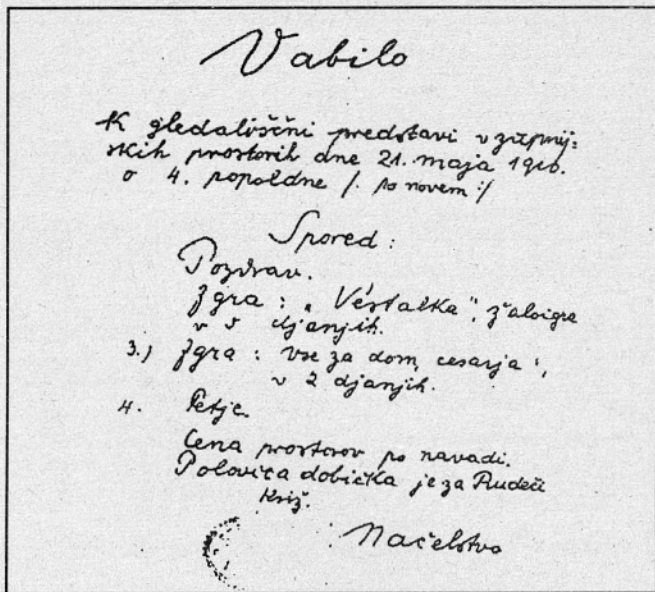 Vabilo
K gledališčni predstavi v župnij=
skih prostorih dne 21. maja 1916.
o 4. popoldne /: po novem :/
Spored:
Pozdrav.
Igra: „Vestalka“, žaloigra
v 5 djanjih.
3.) Igra: vse za dom, cesarja“,
v 2 djanjih.
4. Petje.
Cena prostorov po navadi.
Polovica dobička je za Rudeči
križ.
Načelstvo